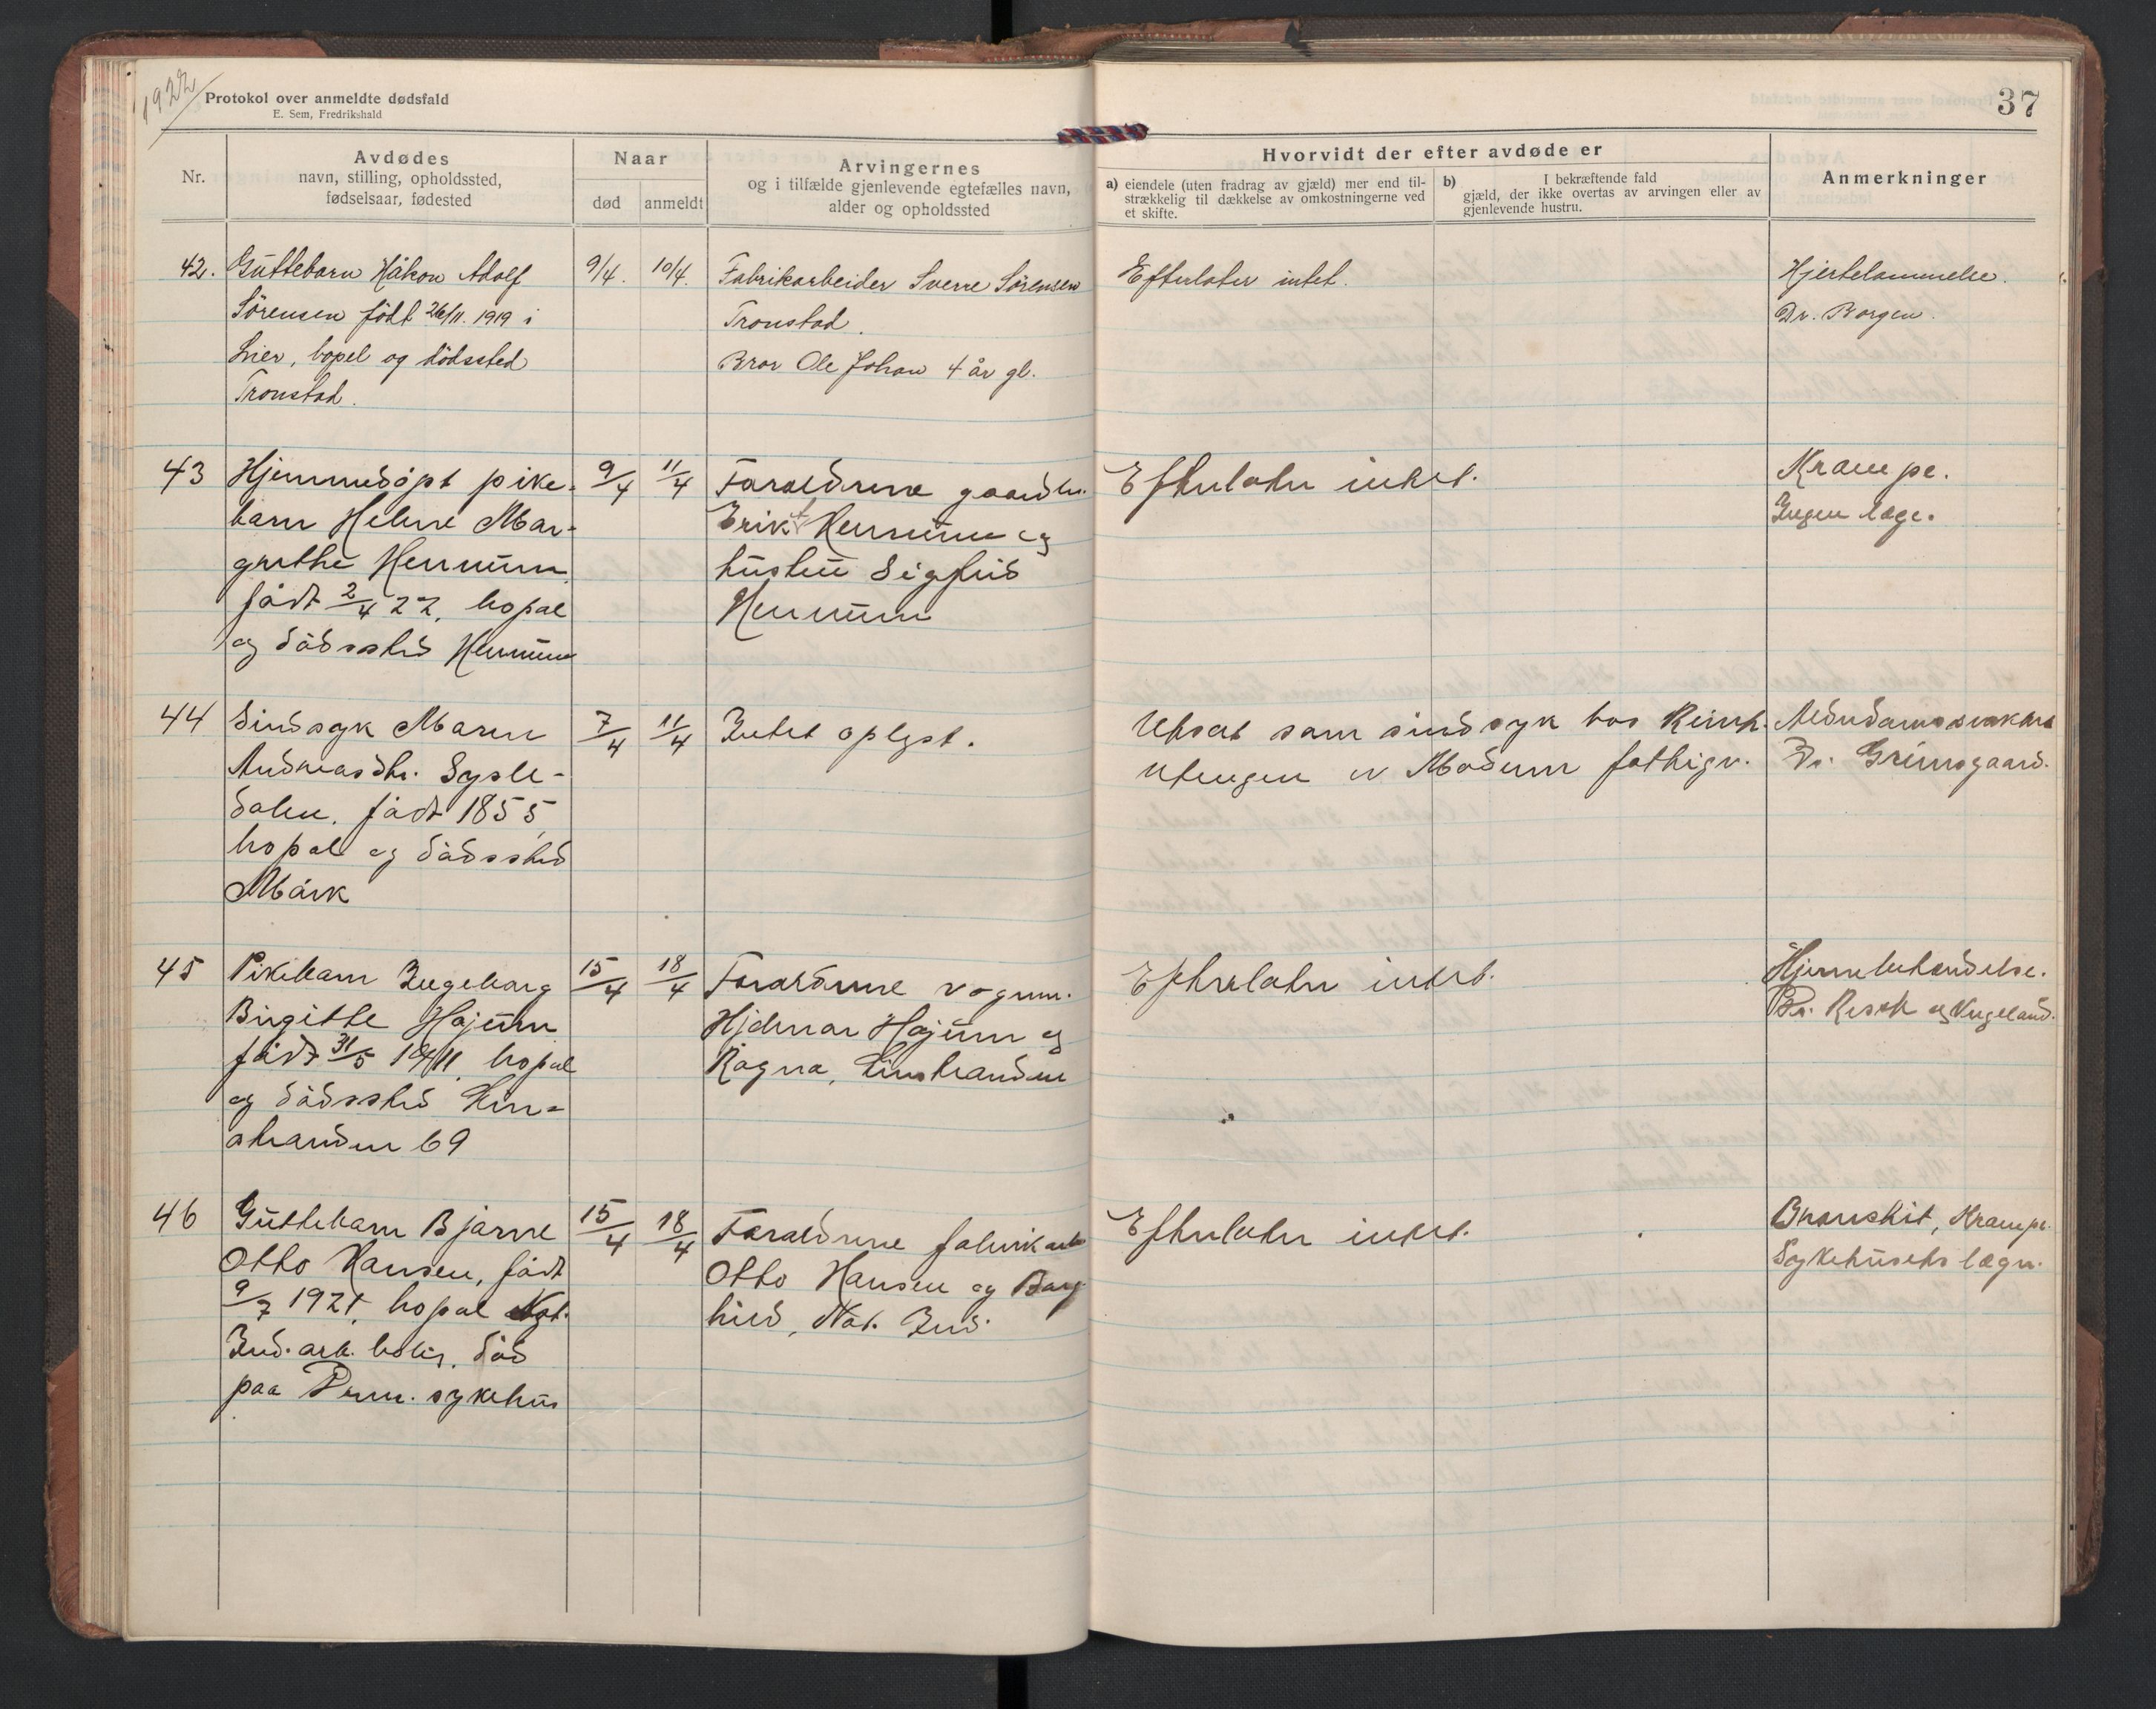 1922
Protokol over anmeldte dødsfald
E. Sem, Fredrikshald
37
Nr.
Avdødes
navn, stilling, opholdssted,
fødselsaar, fødested
Naar
død
anmeldt
Arvingernes
og i tilfælde gjenlevende egtefælles navn,
alder og opholdssted
Hvorvidt der efter avdøde er
a) eiendele (uten fradrag av gjæld) mer end til-
strækkelig til dækkelse av omkostningerne ved
et skifte.
b) I bekræftende fald
gjæld, der ikke overtas av arvingen eller av
gjenlevende hustru.
Anmerkninger
42.
Guttebarn Håkon Adolf
Sörensen födt 26/11. 1919 i
Lier, bopel og dödssted
Tronstad.
9/4.
10/4.
Fabrikarbeider Sverre Sörensen
Tronstad.
Bror Ole Johan 4 år gl.
Efterlater intet.
Hjertelammelse.
Dr. Borgen.
43
Hjemmedöpt pike-
barn Helene Mar-
grethe Hennum
födt 2/4 22, bopæl
og dödssted Hennum
9/4
11/4
Foraeldrene gaardbr.
Erik Hennum og
hustru Sigfrid
Hennum
Efterlater intet.
Krampe.
Ingen læge.
44
Sindssyk Maren
Andreasdtr. Sysle-
dalen. födt 1855,
bopæl og dödssted
Mörk
7/4
11/4
Intet oplyst.
Utsat som sindssyk hos Reinh.
Utengen av Modum fattigv.
Alderdomssvakhet
Dr. Grimsgaard.
45
Pikebarn Ingeborg
Birgitte Højum
födt 31/5 1911, bopæl
og dödssted Lier-
stranden 69
15/4
18/4
Foraeldrene vognm.
Hjalmar Højum og
Ragna, Lierstranden
Efterlater intet.
Hjernebetændelse.
Dr. Resch og Vugeland.
46
Guttebarn Bjarne
Otto Hansen, födt
9/7 1921, bopæl Nat.
Ind. arb. bolig. död
paa Dram. sykehus
15/4
18/4
Foraeldrene fabrikarb
Otto Hansen og Borg
hild, Nat. Ind.
Efterlater intet.
Bronchit, Krampe.
Sykehusets læger.